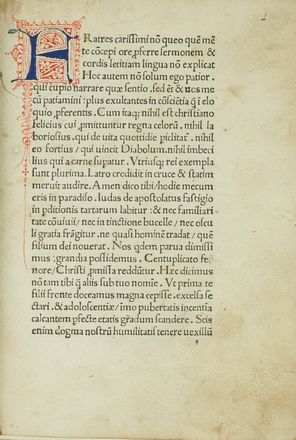 FRatres carissimi nõ queo quẽ mẽ
te cõcepi ore ꝓferre sermonem &
cordis letitiam lingua nõ explicat
Hoc autem nõ solum ego patior.
qui cupio narrare quæ sentio. sed & uos me
cũ patiamini: plus exultantes in cõsciẽtia q̃ i elo
quio ꝓferentis. Cum itaq; nihil est christiano
felicius cui ꝓmittuntur regna celorũ. nihil la
boriosius qui de uita quotidie piclitat̃. nihil
eo fortius / qui uincit Diabolum. nihil imbeci
lius qui a carne supatur. Vtriusq; rei exempla
sunt plurima. Latro credidit in cruce & statim
meruit audire. Amen dico tibi / hodie mecum
eris in paradiso. Iudas de apostolatus fastigio
in pditionis tartarum labitur: & nec familiari
tate cõuiuii / nec in tinctione bucelle / nec oscu
li gratia frãgitur. ne quasi hominẽ tradat / quẽ
filium dei nouerat. Nos qdem parua dimissi
mus: grandia possidemus. Centuplicato fœ
nore / Christi ꝓmissa reddũtur. Hæc dicimus
nõ tam tibi q̃ aliis sub tuo noĩe. Vt prima te
filii fronte doceamus magna cepisse. excelsa se
ctari. & adoloscẽtiæ / ĩmo pubertatis incentia
calcantem pfecte etatis gradum scandere. Scis
enim dogma nostrũ humilitatis tenere uexillũ